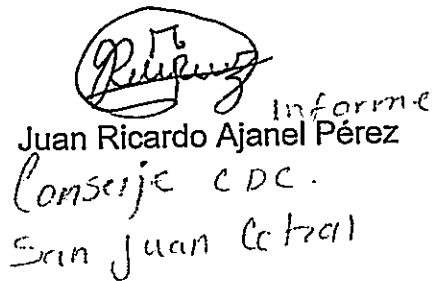 Informe
Juan Ricardo Ajanel Pérez
Conserje CDC.
San Juan